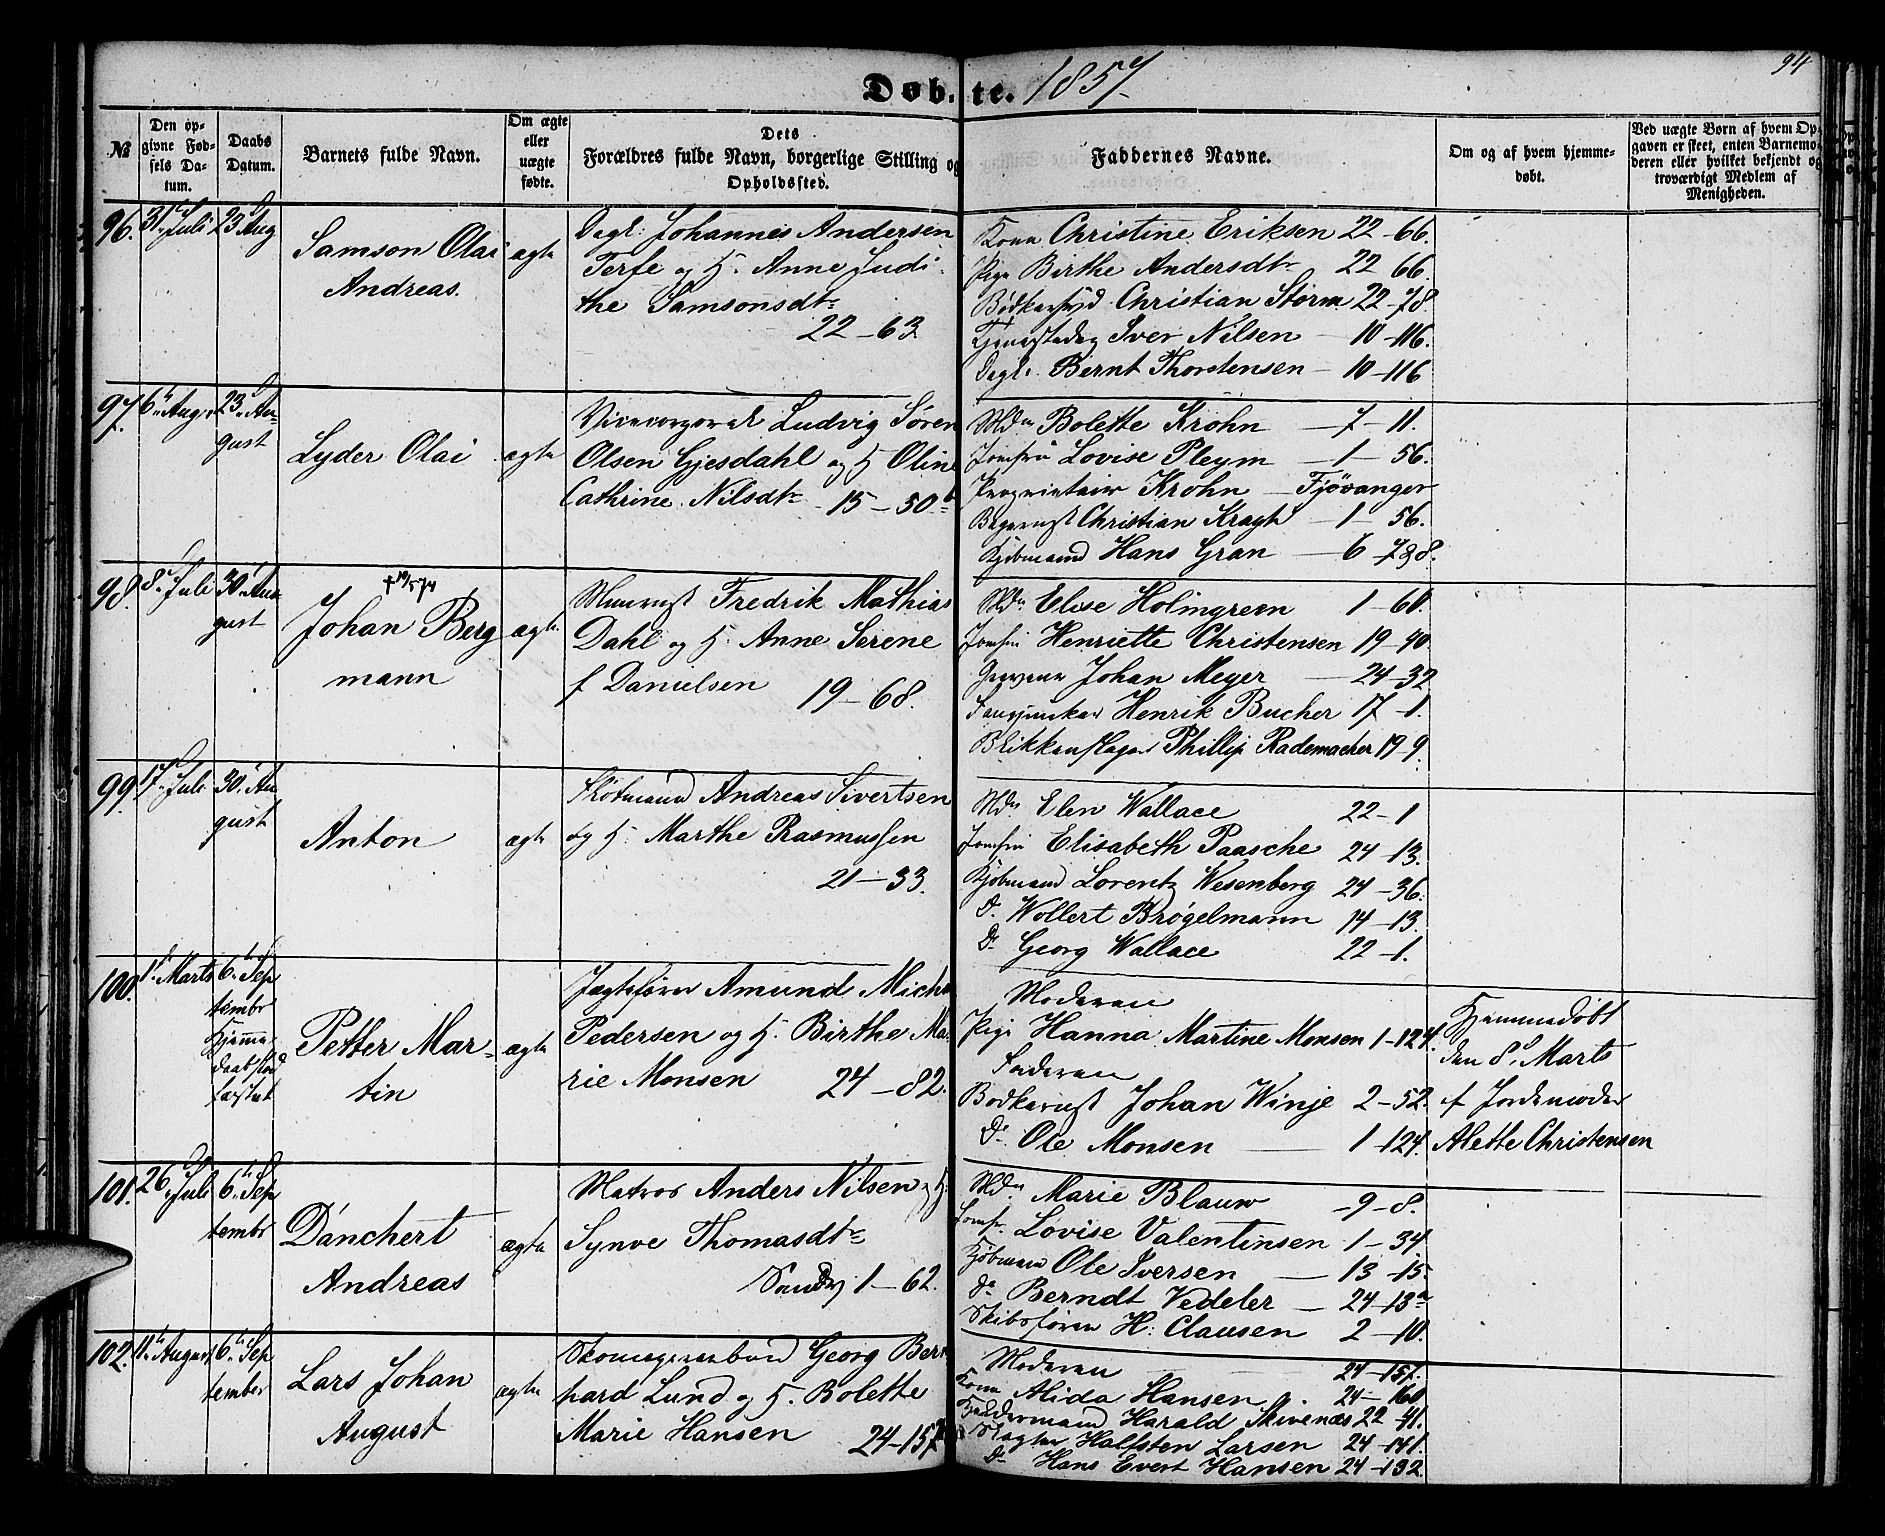 94
Døbte. 1857
№
Den opgivne Fødsels Datum.
Daabs Datum.
Barnets fulde Navn.
Om ægte eller uægte fødte.
Dets Forældres fulde Navn, borgerlige Stilling og Opholdssted.
Faddernes Navne.
Om og af hvem hjemmedøbt.
Ved uægte Børn af hvem Opgaven er skeet, enten Barnemoderen eller hvilket bekjendt og troværdigt Medlem af Menigheden.
96. 31 Juli 23 Aug
Samson Olai
Andreas.
ægte
Dagl: Johannes Andersen
Terfe og H. Anne Judi
the Samsonsdtr
22-63
Kone Christine Eriksen 22-66.
Pige Birthe Andersdtr 22 66.
Christian Storm 22-78.
Iver Nilsen 10-116.
Dagl. Bernt Thorstensen 10-116
97. 6 Aug 23 Au
gust
Lyder Olai
ægte
Ludvig Søren
Olsen Gjesdahl og H Oline
Cathrine Nilsdtr 15-50b
Mdm Bolette Krohn 7-11.
Jomfru Lovise Pleym 1-56.
Proprietair Krohn Fjøsanger
Christian Kragh 1-56.
Kjøbmand Hans Gran 6-7&8.
98. 8 Juli 30 Au
gust
† 19/5 74
Johan Berg
mann
ægte
Fredrik Mathias
Dahl og H. Anne Serene
f Danielsen 19-68.
Mdm Elise Holmgreen 1-60.
Jomfru Henriette Christensen 19-40.
Johan Meyer 24-32
Henrik Bucher 17-1.
Blikkenslager Phillip Rademacher 19-9.
99. 17 Juli 30 Au
gust
Anton
ægte
Andreas Sivertsen
og H. Marthe Rasmussen
21-33.
Mdm Elen Wallace 22-1
Jomfru Elisabeth Paasche 24-13.
Kjøbmand Lorentz Wesenberg 24-36.
Do Wollert Brøgelmann 14-13.
Do Georg Wallace 22-1.
100. 1 Marts 6 Sep
tembr
Hjemme
daab stad
fæstet
Petter Mar-
tin
ægte
Jægtefører Amund Micha
Pedersen og H. Birthe Ma
rie Monsen 24-82.
Moderen
Pige Hanna Martine Monsen 1-124.
Faderen
Bødkersv Johan Winje 2-52.
Do Ole Monsen 1-124.
Hjemmedøbt
den 8 Marts
af Jordemoder
Alette Christensen
101. 26 Juli 6 Sep
tembr
Danchert
Andreas
ægte
Matros Anders Nilsen og H.
Synve Thomasdtr
Sandv 1-62.
Mdm Marie Blauw 9-8.
Jomfr. Lovise Valentinsen 1-34
Kjøbmand Ole Iversen 13-15.
Do Berndt Vedeler 24-13a
Skibsfører H: Clausen 2-10.
102. 11 August 6 Sep
tember
Lars Johan
August
ægte
Skomagersvend Georg Bern
hard Lund og H. Bolette
Marie Hansen 24-157
Moderen 24-157.
Kone Alida Hansen 24-160
Harald Skivenæs 22-41.
Slagter Halfsten Larsen 24-141.
Do Hans Evert Hansen 24-132.